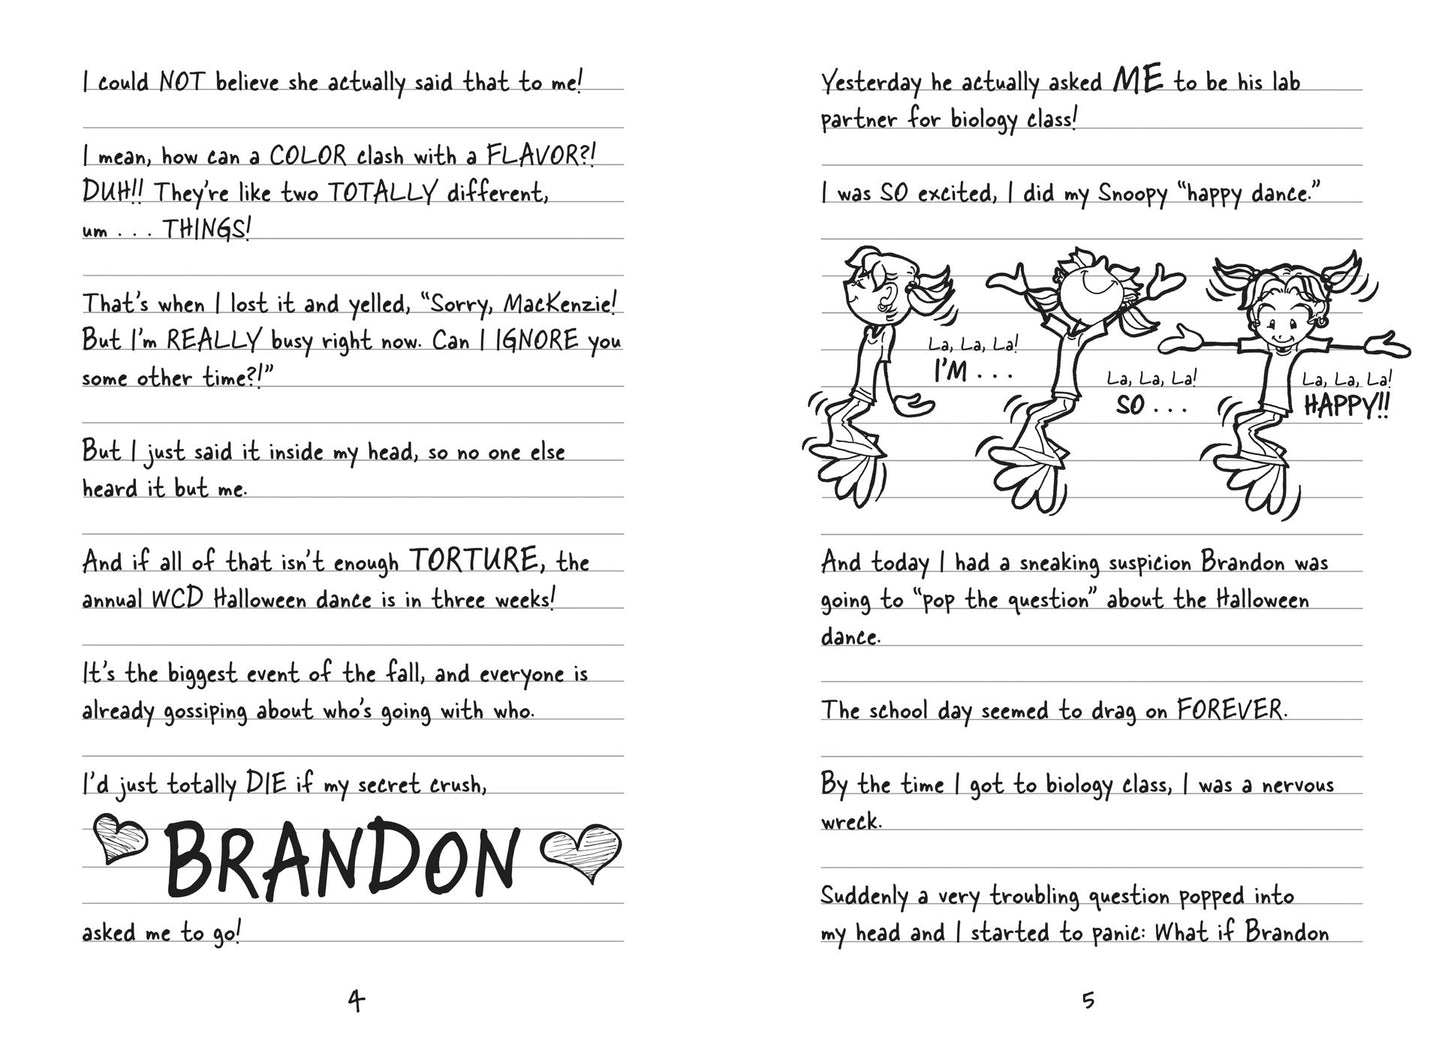 I could NOT believe she actually said that to me!
I mean, how can a COLOR clash with a FLAVOR?!
DUH!! They're like two TOTALLY different,
um . . . THINGS!
That's when I lost it and yelled, "Sorry, MacKenzie!
But I'm REALLY busy right now. Can I IGNORE you
some other time?!"
But I just said it inside my head, so no one else
heard it but me.
And if all of that isn't enough TORTURE, the
annual WCD Halloween dance is in three weeks!
It's the biggest event of the fall, and everyone is
already gossiping about who's going with who.
I'd just totally DIE if my secret crush,
BRANDON
asked me to go!
4
Yesterday he actually asked ME to be his lab
partner for biology class!
I was SO excited, I did my Snoopy "happy dance."
La, La, La!
I'M . . .
La, La, La!
SO . . .
La, La, La!
HAPPY!!
And today I had a sneaking suspicion Brandon was
going to "pop the question" about the Halloween
dance.
The school day seemed to drag on FOREVER.
By the time I got to biology class, I was a nervous
wreck.
Suddenly a very troubling question popped into
my head and I started to panic: What if Brandon
5